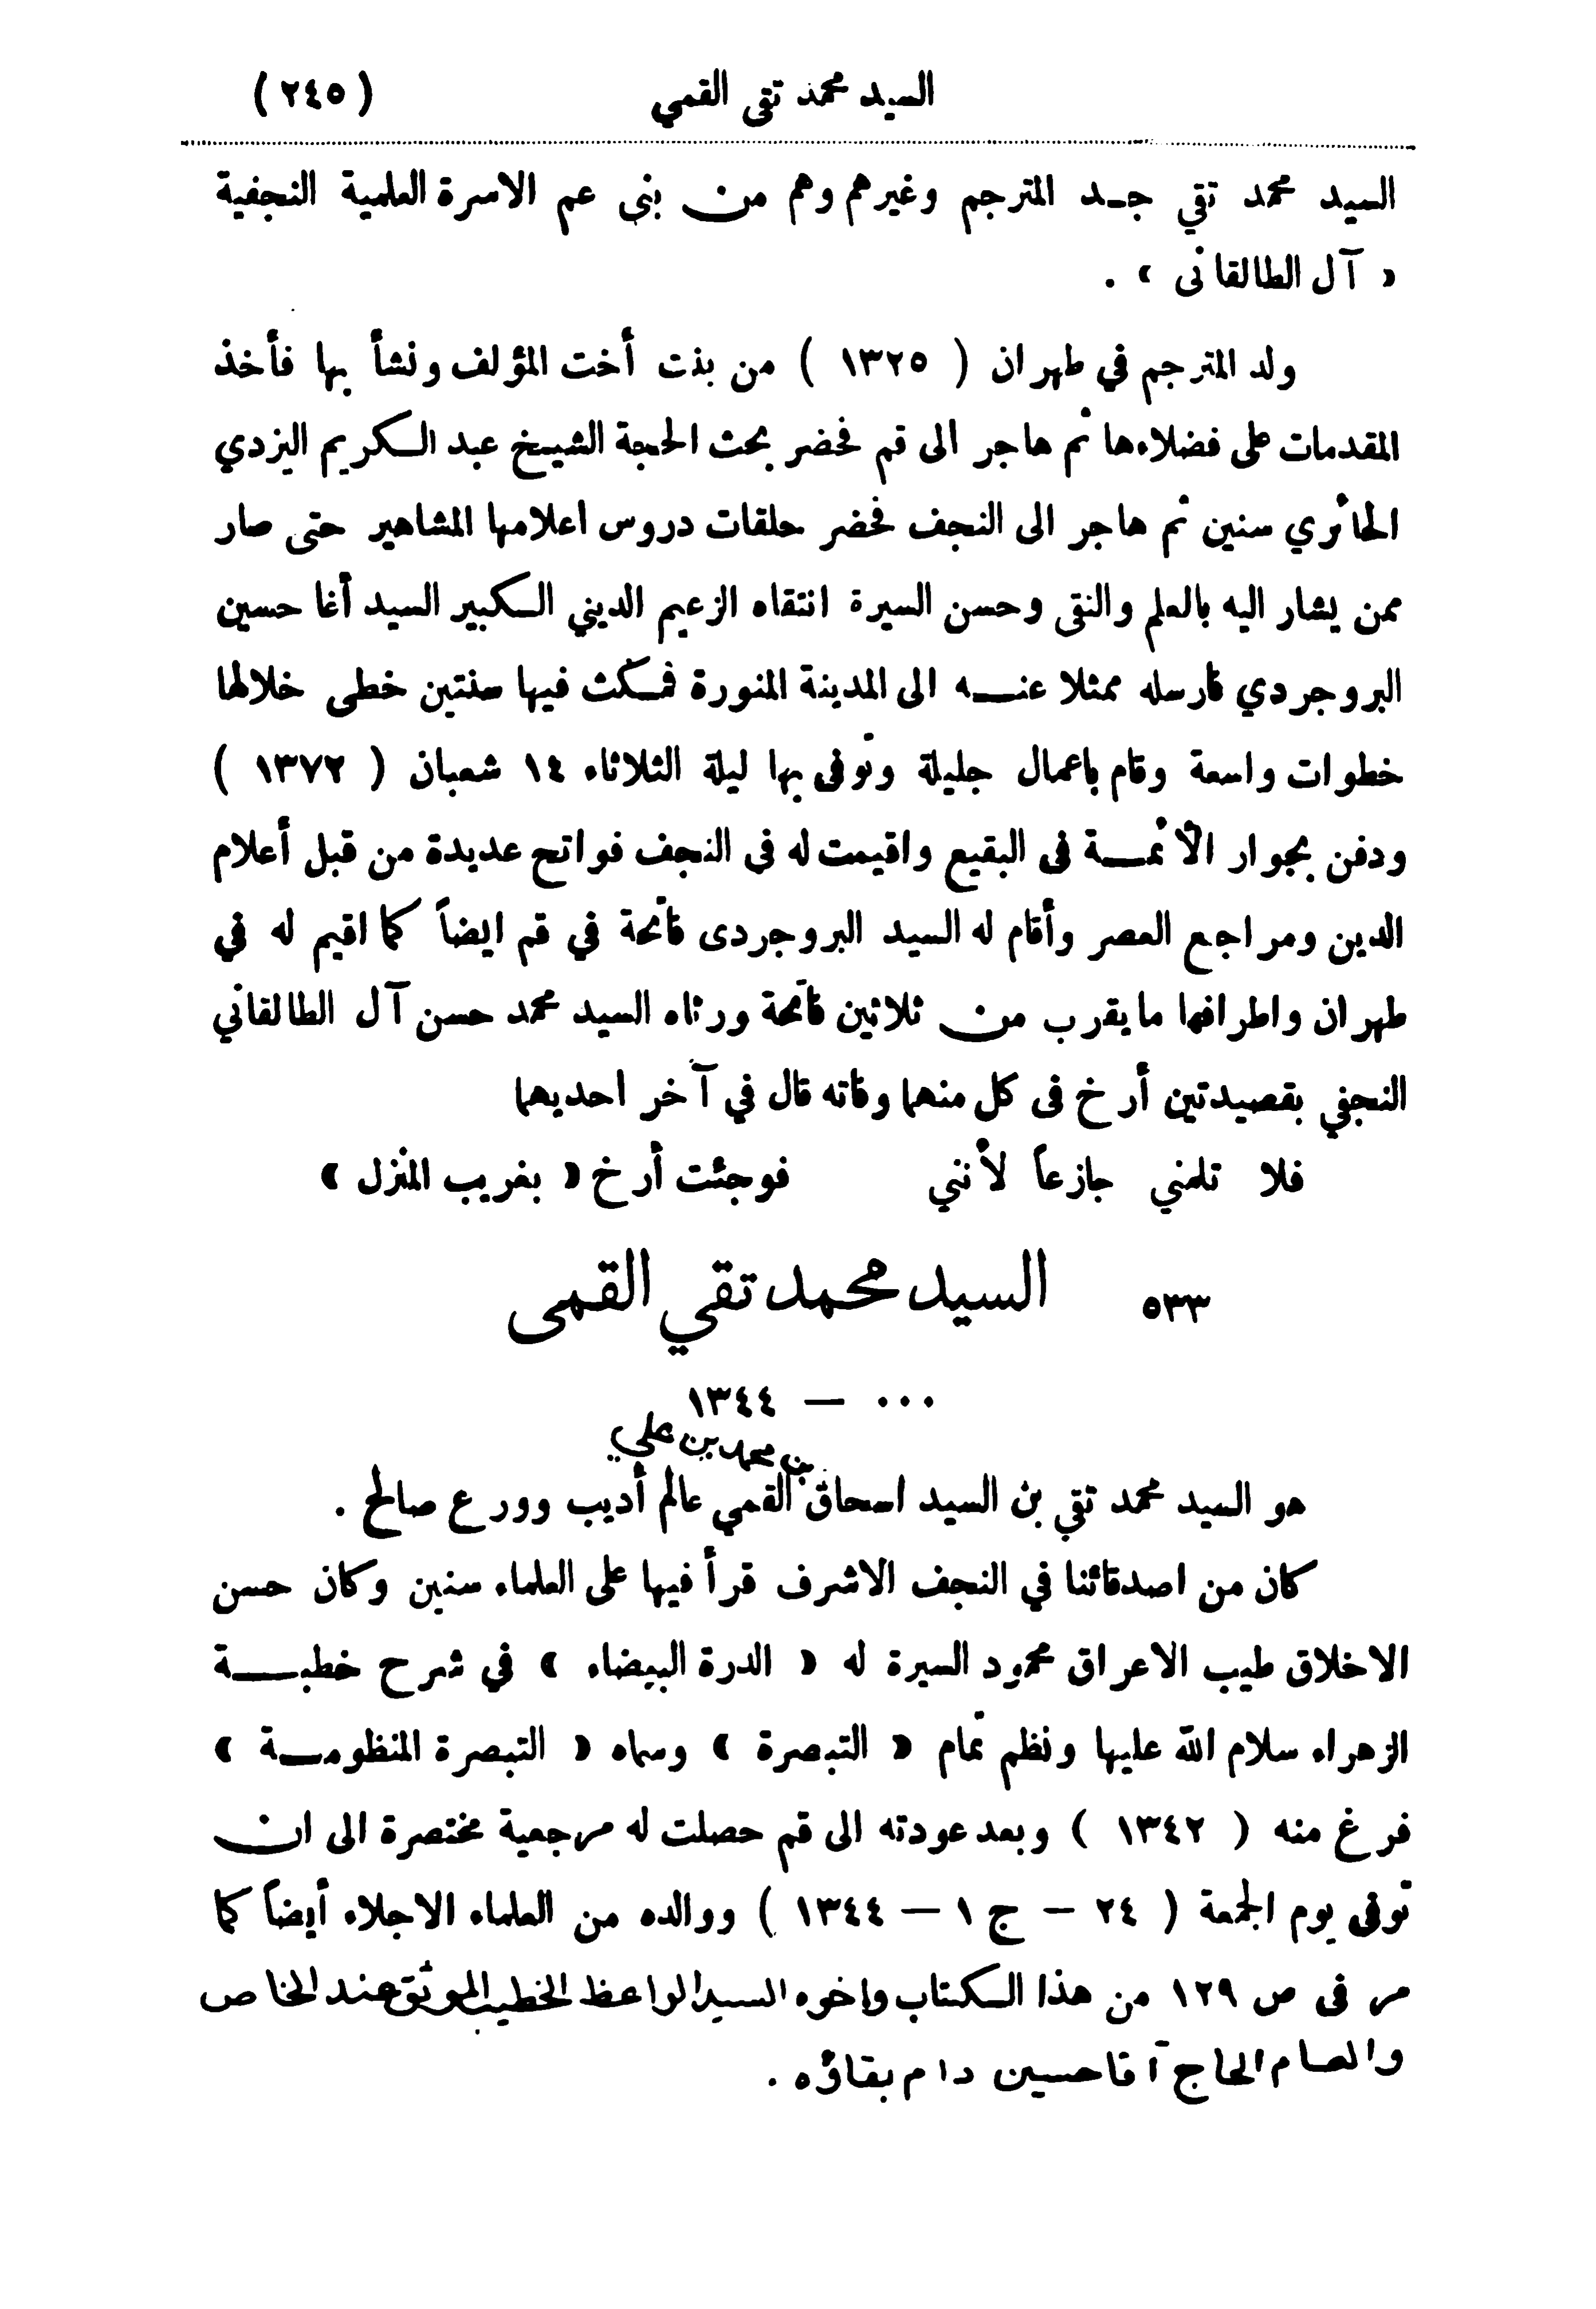 السيد محمد تقى القمي (٢٤٥)
السيد محمد تقي جد المترجم وغيرهم وهم من بنى عم الاسرة العلمية النجفية
« آل الطالقانى » .
ولد المترجم في طهران ( ١٣٢٥ ) من بنت أخت المؤلف ونشأ بها فأخذ
المقدمات على فضلاءها ثم هاجر الى قم فحضر بحث الحجة الشيخ عبد الكريم اليزدي
الحائري سنين ثم هاجر الى النجف فحضر حلقات دروس اعلامها المشاهير حتى صار
ممن يشار اليه بالعلم والتقى وحسن السيرة انتقاه الزعيم الديني الكبير السيد أغا حسين
البروجردي فارسله ممثلا عنه الى المدينة المنورة فمكث فيها سنتين خطى خلالها
خطوات واسعة وقام باعمال جليلة وتوفى بها ليلة الثلاثاء ١٤ شعبان ( ١٣٧٢ )
ودفن بجوار الأئمة فى البقيع واقيمت له فى النجف فواتح عديدة من قبل أعلام
الدين ومراجع العصر وأقام له السيد البروجردى فاتحة في قم ايضاً كما اقيم له في
طهران واطرافها مايقرب من ثلاثين فاتحة ورثاه السيد محمد حسن آل الطالقاني
النجفي بقصيدتين أرخ فى كل منهما وفاته قال في آخر احديهما
فلا تلمني جازعاً لأنني فوجئت أرخ « بغريب المنزل »
٥٣٣ السيد محمد تقي القمى
... — ١٣٤٤
بن محمد بن علي
هو السيد محمد تقي بن السيد اسحاق القمي عالم أديب وورع صالح .
كان من اصدقائنا في النجف الاشرف قرأ فيها على العلماء سنين وكان حسن
الاخلاق طيب الاعراق محمود السيرة له « الدرة البيضاء » في شرح خطبة
الزهراء سلام الله عليها ونظم تمام « التبصرة » وسماه « التبصرة المنظومة »
فرغ منه ( ١٣٤٢ ) وبعد عودته الى قم حصلت له مرجعية مختصرة الى ان
توفى يوم الجمعة ( ٢٤ — ج ١ — ١٣٤٤ ) ووالده من العلماء الاجلاء أيضاً كما
مر فى ص ١٢٩ من هذا الكتاب واخوه السيد الواعظ الخطيب الموثق عند الخاص
والعام الحاج آقا حسين دام بقاؤه .